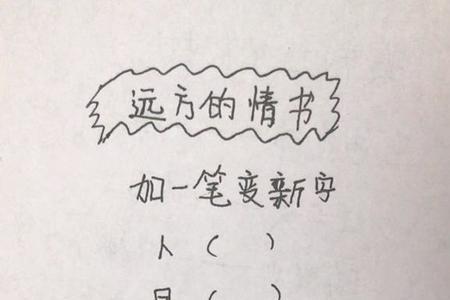 远方的情书
加一笔变新字
人（ ）
日（ ）